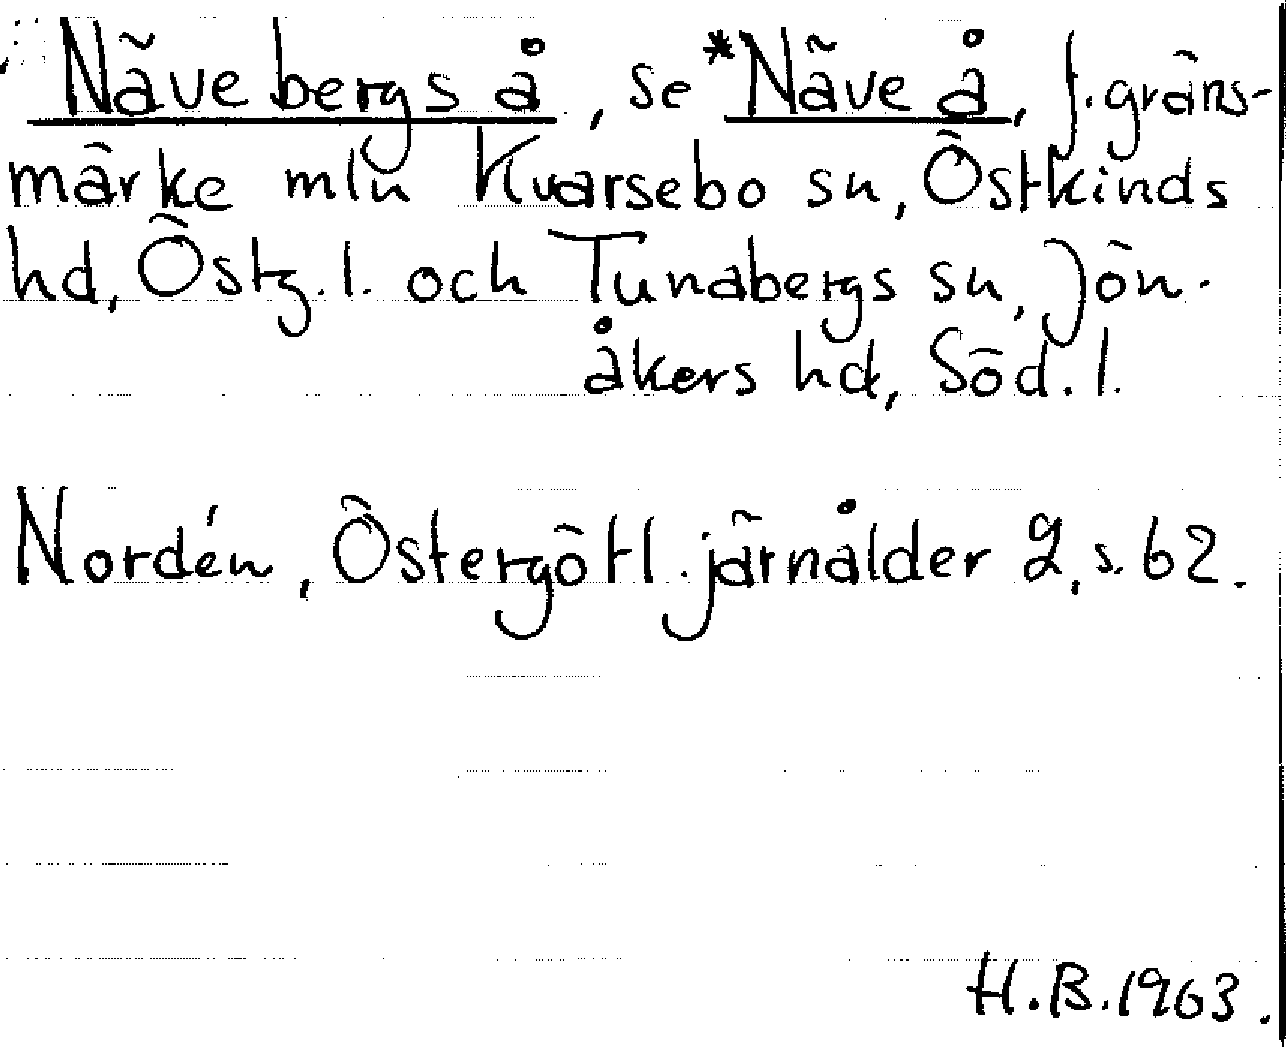 Nävebergs å, se *Näve å, f. gräns-
märke mln Kvarsebo sn, Östkinds
hd, Östg. l. och Tunabergs sn, Jön-
åkers hd, Söd. l.
Nordén, Östergötl. järnålder 2, s. 62.
H.B. 1963.